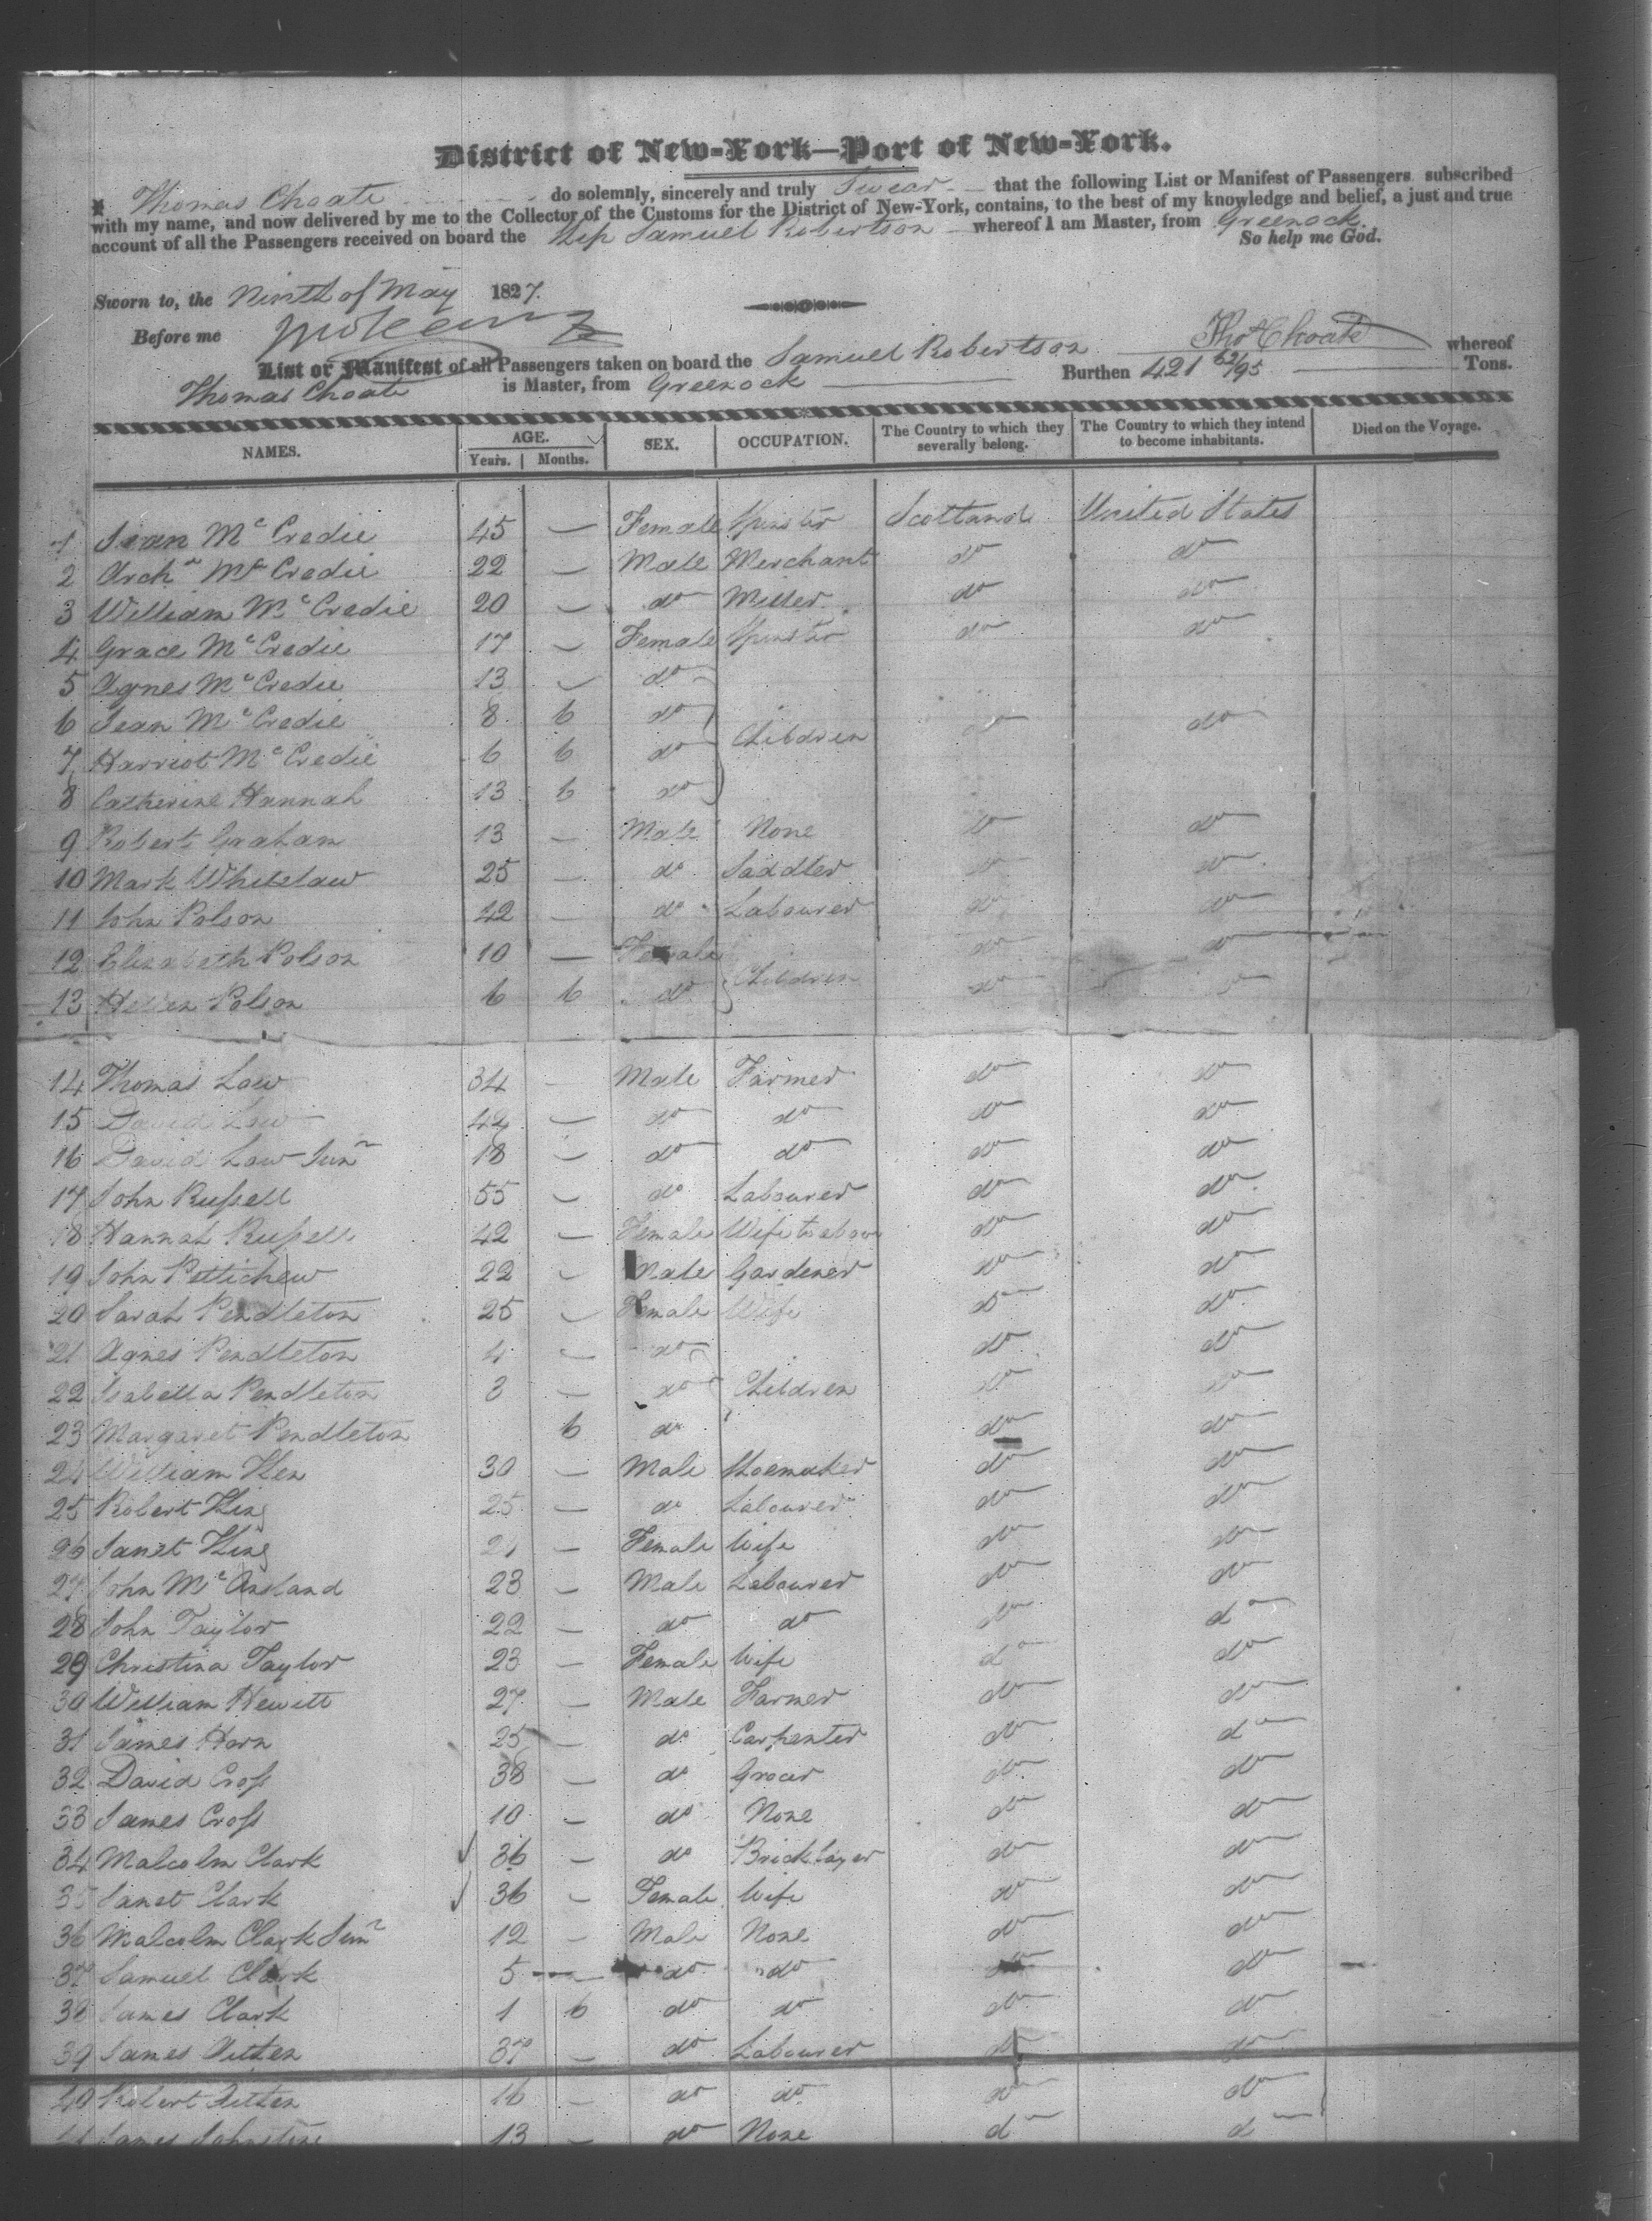 District of New-York—Port of New-York.
I, Thomas Choate do solemnly, sincerely and truly Swear that the following List or Manifest of Passengers subscribed
with my name, and now delivered by me to the Collector of the Customs for the District of New-York, contains, to the best of my knowledge and belief, a just and true
account of all the Passengers received on board the Ship Samuel Robertson whereof I am Master, from Greenock.
So help me God.
Sworn to, the Ninth of May 1827.
Before me
Thos Choate
List or Manifest of all Passengers taken on board the Samuel Robertson whereof
Thomas Choate is Master, from Greenock Burthen 421 52/95 Tons.
NAMES. AGE. Years. Months. SEX. OCCUPATION. The Country to which they severally belong. The Country to which they intend to become inhabitants. Died on the Voyage.
1 Jean McCredie 45 — Female Spinster Scotland United States
2 Archd McCredie 22 — Male Merchant do do
3 William McCredie 20 — do Miller do do
4 Grace McCredie 17 — Female Spinster do do
5 Agnes McCredie 13 — do
6 Jean McCredie 8 6 do do do
7 Harriot McCredie 6 6 do Children
8 Catherine Hannah 13 6 do
9 Robert Graham 13 — Male None do do
10 Mark Whitelaw 25 — do Saddler do do
11 John Polson 42 — do Labourer do do
12 Elizabeth Polson 10 — Female do do
13 Hellen Polson 6 6 do Children do do
14 Thomas Law 34 — Male Farmer do do
15 David Law 42 — do do do do
16 David Law Junr 18 — do do do do
17 John Russell 55 — do Labourer do do
18 Hannah Russell 42 — Female Wife to above do do
19 John Pettichew 22 — Male Gardener do do
20 Sarah Pendleton 25 — Female Wife do do
21 Agnes Pendleton 4 — do do do
22 Isabella Pendleton 3 — do Children do do
23 Margaret Pendleton 6 do do do
24 William Ken 30 — Male Shoemaker do do
25 Robert King 25 — do Labourer do do
26 Janet King — Female Wife do do
27 John McAusland 23 — Male Labourer do do
28 John Taylor 22 — do do do do
29 Christina Taylor 23 — Female Wife do do
30 William Hewitt 27 — Male Farmer do do
31 James Horn 25 — do Carpenter do do
32 David Cross 38 — do Grocer do do
33 James Cross 10 — do None do do
34 Malcolm Clark 36 — do Bricklayer do do
35 Janet Clark 36 — Female Wife do do
36 Malcolm Clark Junr 12 — Male None do do
37 Samuel Clark 5 — do do do do
38 James Clark 1 6 do do do do
39 James Aitken 37 — do Labourer do do
40 Robert Aitken 16 — do do do do
41 James Johnstone 13 — do None do do